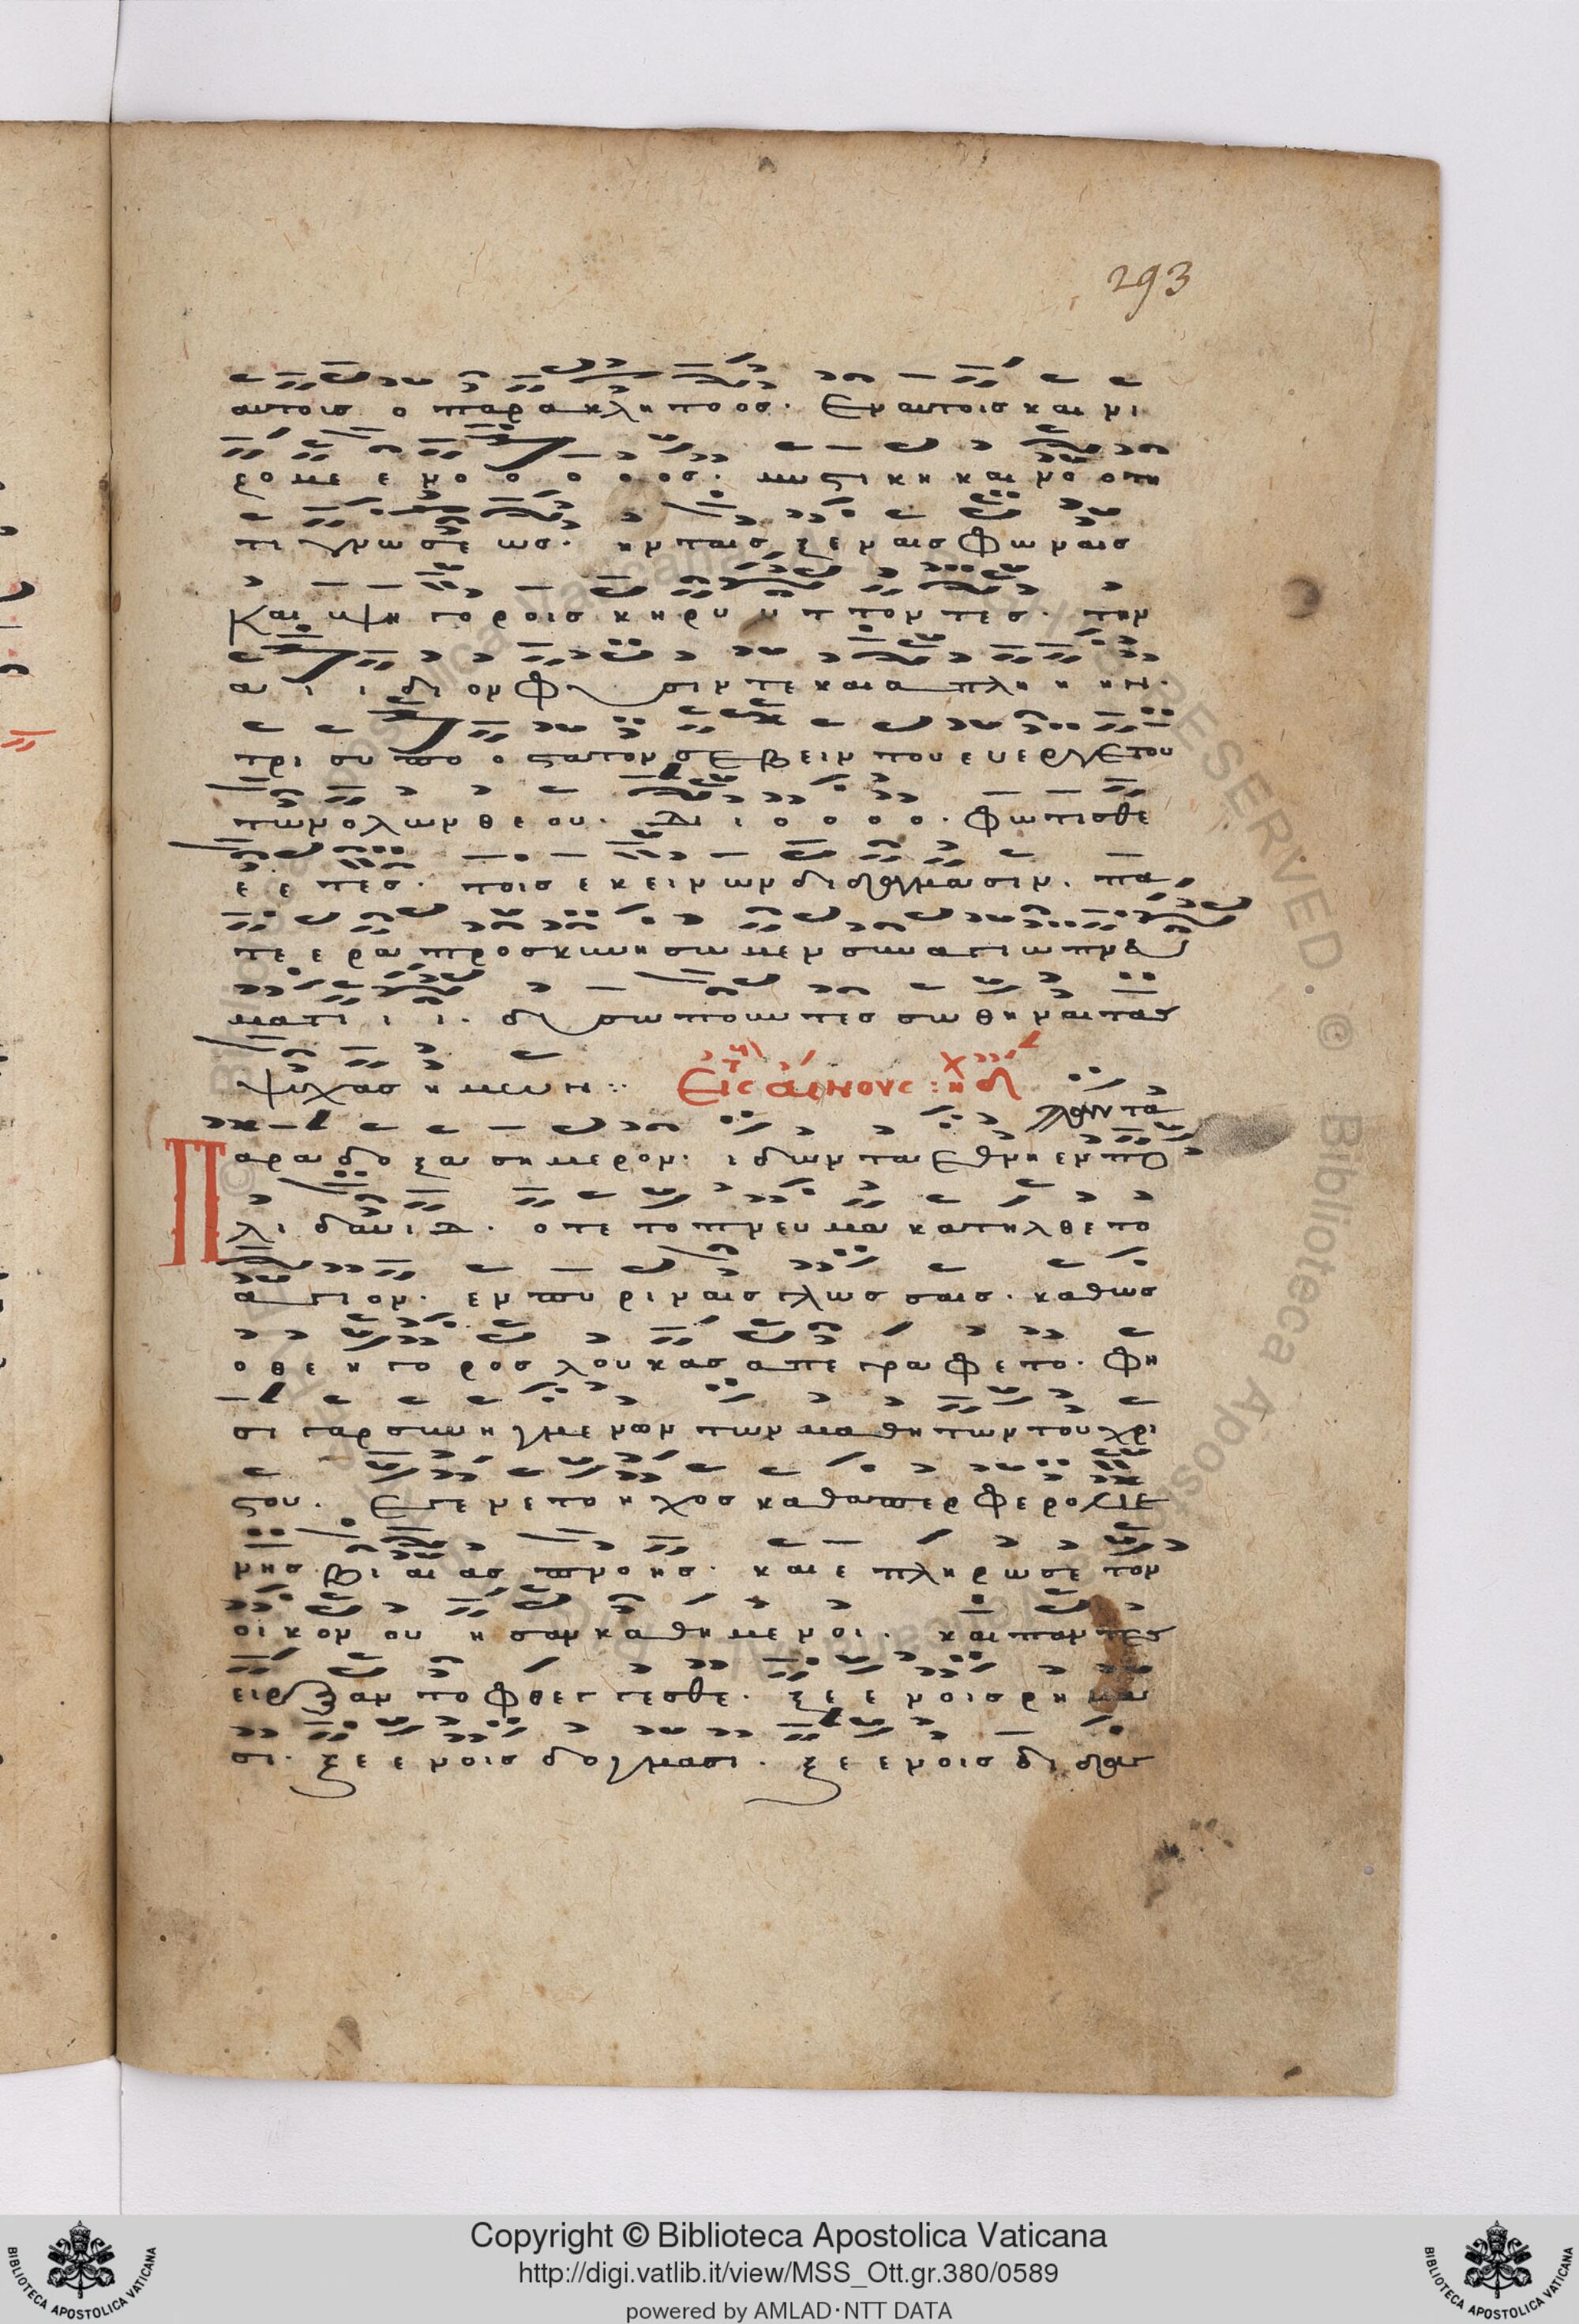 293
αυτοισ ο παρα κλη το οσ· Εν αυτοισ και νι
ζο με ε νο ο ο ο οσ· μυστικη και νο ο τη
τι γνω σε ωσ· εν ταισ ξε ναισ φω ναισ
Και υψη γο ροισ κηρυ υ τ τον τεσ· την
αι ι ι δι ον φυ σιν τε και α πλη η ην·
τρι συ πο ο στατον σεβειν του ευεργετου
των ολων θεου· Δι ι ο ο ο ο· φωτισθε
ε ε τεσ· τοισ εκεινων διδαγμασιν· πα
τε ε ρα προσκυνησωμεν συν αγιω πνευ
ματι ι ι· δυσωπουντεσ σωθηναι τασ
ψυχασ ημων::
Εισ αινουσ: ηχ δ
Παραδοξα σημερον· ιδον τα εθνη εν πο
λι δαυιδ· οτε το πνευμα κατηλθε το
αγιον· εν πυριναισ γλωσσαισ· καθωσ
ο θεηγοροσ λουκασ απεγραφετο· φη
σι γαρ συνηγμενων των μαθητων του χρι
στου· Εγενετο ηχοσ καθαπερ φερομε
νησ βιαιασ πνοησ· και επληρωσε τον
οικον ου ησαν καθημενοι· και παντεσ
ειρξαν το φθεγγεσθε· ξε ε νοισ ρημα
σι· ξε ε νοισ δογμασι· ξε ε νοισ διδαγ
Copyright © Biblioteca Apostolica Vaticana
http://digi.vatlib.it/view/MSS_Ott.gr.380/0589
powered by AMLAD·NTT DATA